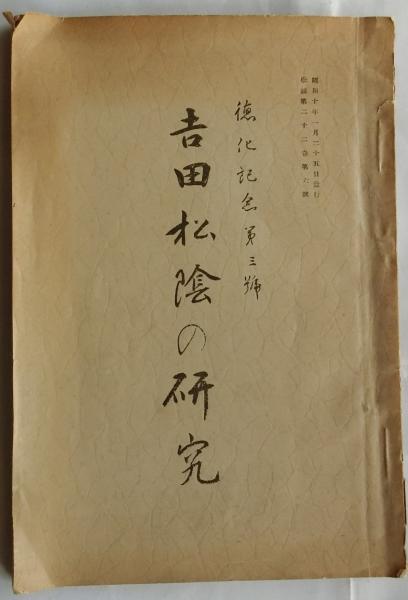 昭和十年一月二十五日発行
第二十二巻第六號
徳化記念第三號
吉田松陰の研究